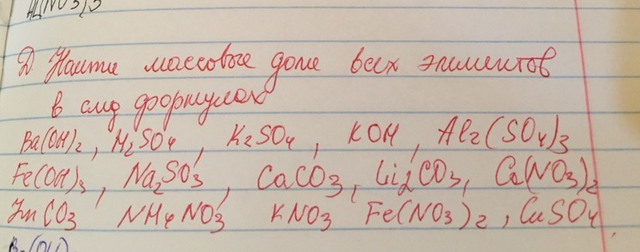 Al(NO3)3
Д Найти массовые доли всех элементов
в след формулах
Ba(OH)2, H2SO4, K2SO4, KOH, Al2(SO4)3
Fe(OH)3, Na2SO3, CaCO3, Li2CO3, Ca(NO3)2
ZnCO3 NH4NO3 KNO3 Fe(NO3)2, CuSO4